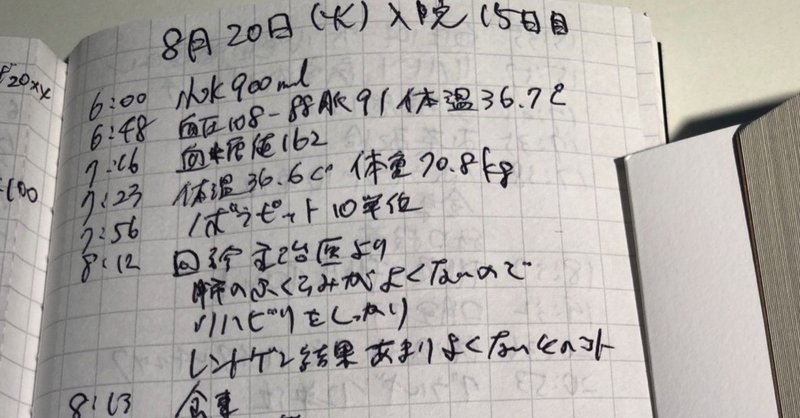 8月20日(水)入院15日目
6:00 小水900ml
6:48 血圧108-88脈91体温36.7℃
7:16 血糖値162
7:23 体温36.6c° 体重70.8kg
7:56 ノボラピット10単位
8:12 回診 主治医より
肺のふくらみがよくないので
リハビリをしっかり
レントゲン結果あまりよくないとのコト
8:13 食事